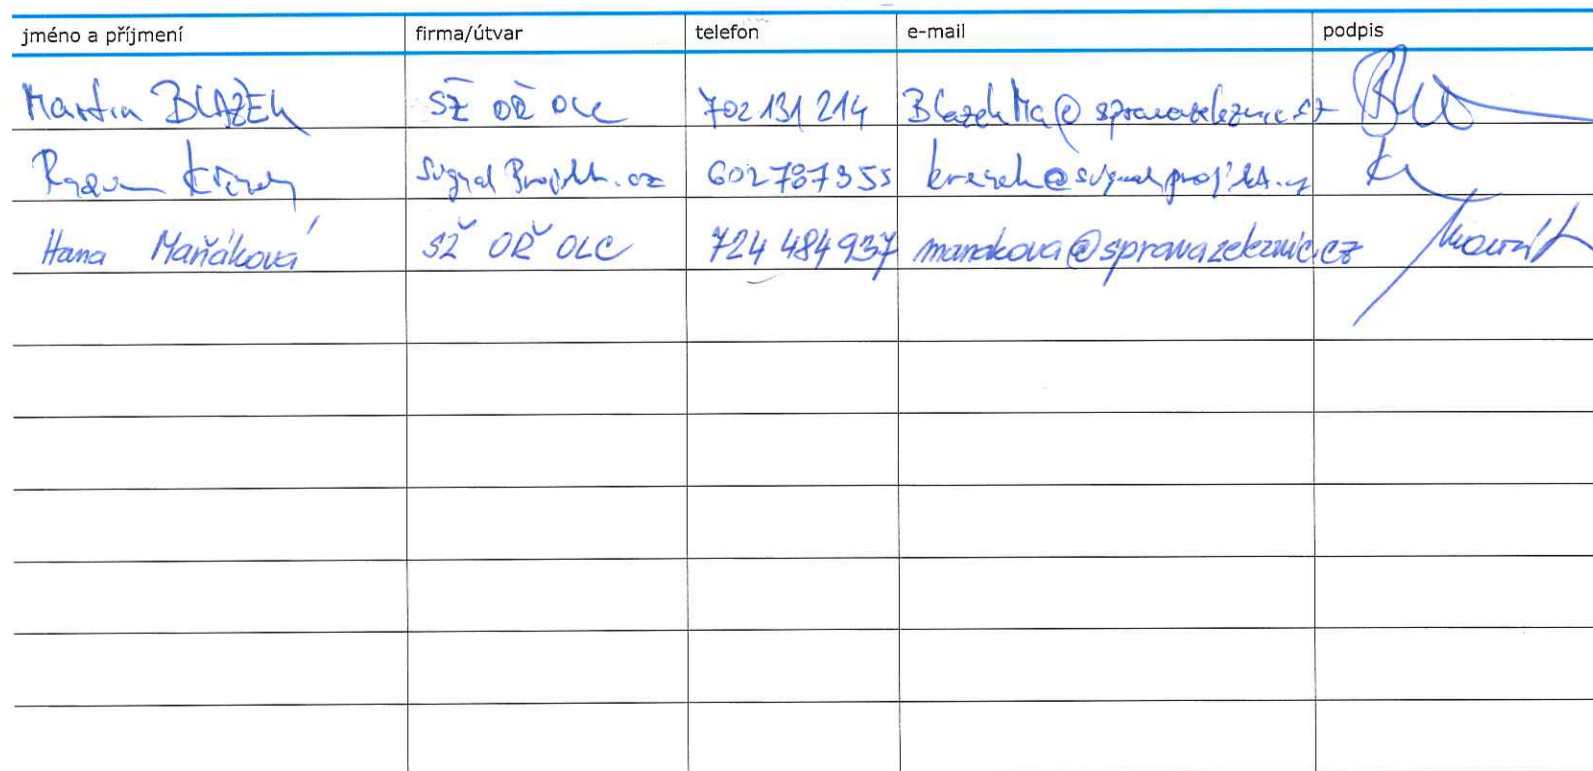 jméno a příjmení firma/útvar telefon e-mail podpis
Martin BLAŽEK SŽ OŘ OLC 702 131 214 BlazekMa@spravazeleznic.cz
Signal Projekt.cz 602 787 355
Hana Maňáková SŽ OŘ OLC 724 484 937 manakova@spravazeleznic.cz